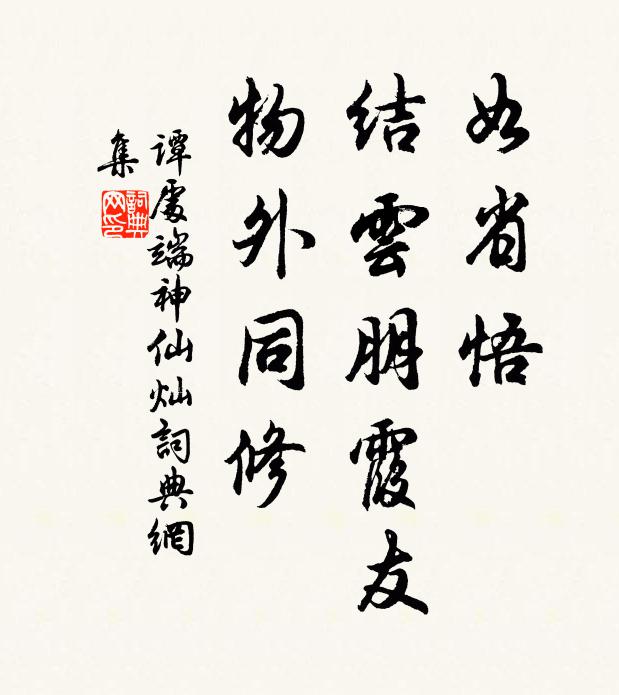 如省悟
結雲朋霞友
物外同修
譚處端神仙灿詞典網
集
詞典网印